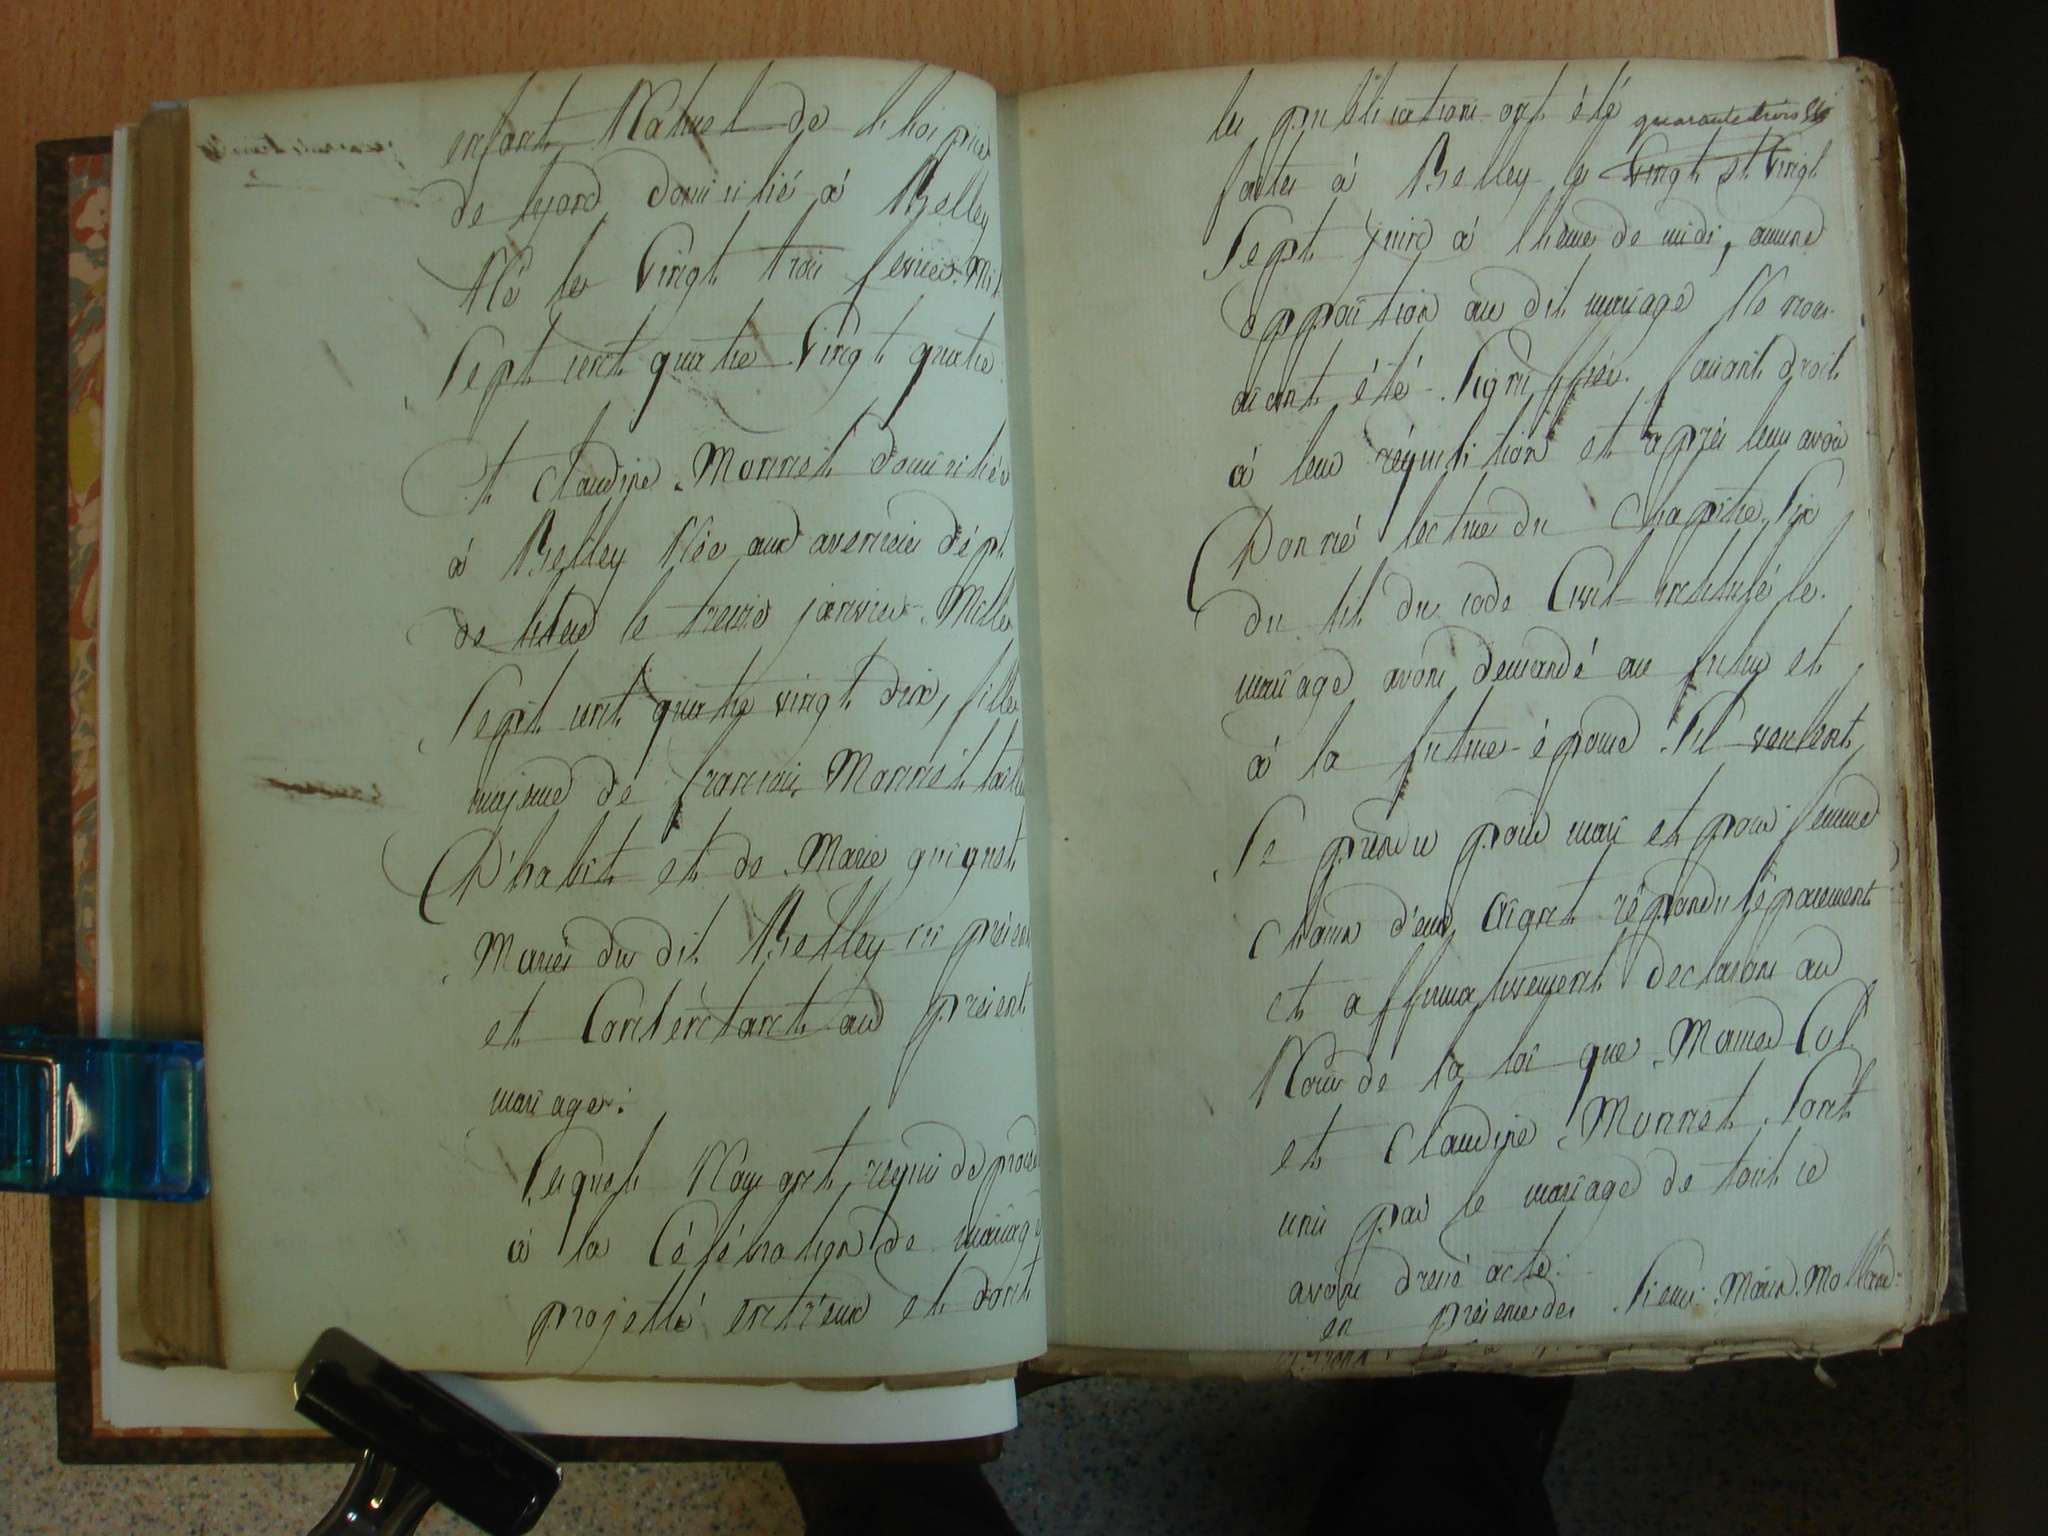 enfant Naturel de lhospice
de lyond domicilié à Belley
Né le Vingt trois fevrier Mil
Sept cent quatre Vingt quatre
Et Claudine Monnet domiciliée
à Belley Née aux avenieres dépt
de le treize janvier Mille
Sept cent quatre vingt dix, fille
majeure de francois Monnet tailleur
D'habit et de Marie guignet
Mariés du dit Belley ici présent
et Consentant au présent
mariage.
Lesquels Nous ont requis de procéder
à la Célébration de mariage
projetté entr'eux et dont
les publications ont été quarante trois
faites à Belley les Vingt et Vingt
Sept juin à lheure de midi, aucune
opposition au dit mariage Ne nous
aiant été Signiffiée. faisant droit
à leur réquisition et après leur avoir
Donné lecture du Chapitre Six
du tit du code Civil intitulé le
mariage avons demandé au futur et
à la future épouse S'il veulent
Se prendre pour mari et pour femme
chacun d'eux Aiant répondu séparement
et affirmativement declarons au
Nom de la loi que Maure Col
et Claudine Monnet Sont
unis par le mariage de tout ce
avons dressé acte.
en présence des Sieurs Marin Mollard